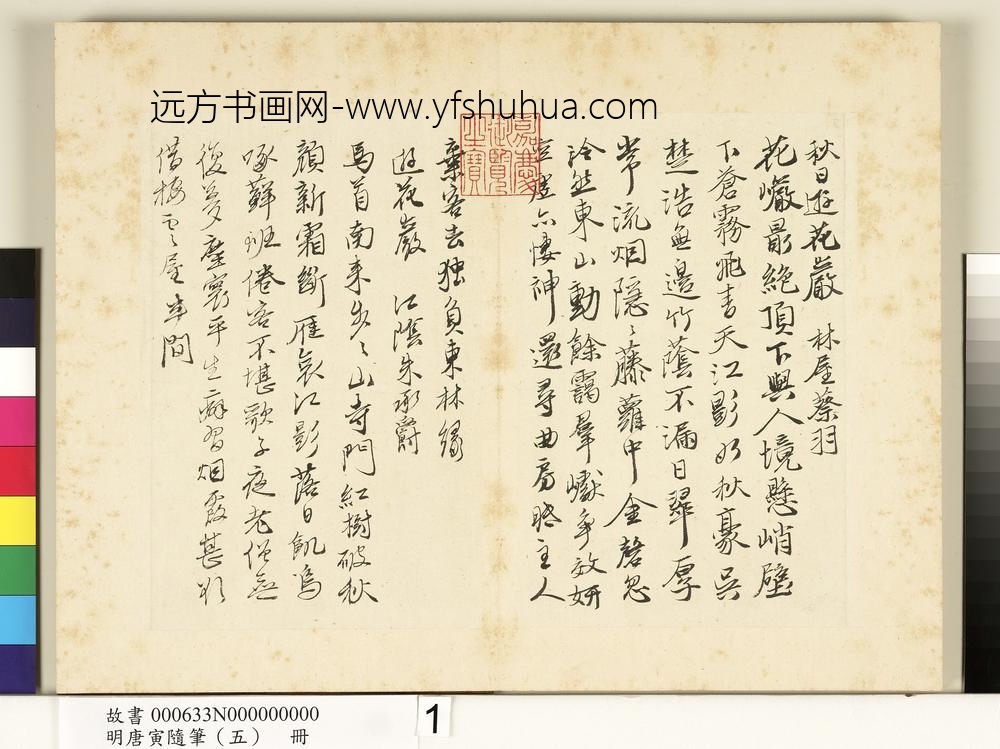 远方书画网-www.yfshuhua.com
秋日遊花巖 林屋蔡羽
花巘最絶頂下與人境懸峭壁
下蒼霧飛青天江影如秋豪吳
楚浩無邊竹蔭不漏日翠厚
常流烟隱〻藤蘿中金磬忽
泠然東山動餘靄羣巘爭放妍
亦悽神還尋曲房眠主人
棄客去独負東林緣
遊花巖 江陰朱承爵
馬首南來步〻山寺門紅樹破秋
顏新霜斷雁哀江影落日飢烏
啄蘚班倦客不堪歌子夜老僧無
復夢塵寰平生癖習烟霞甚
借梅雲屋半間
嘉慶御覽之寶
故書 000633N000000000
明唐寅隨筆（五） 冊
1